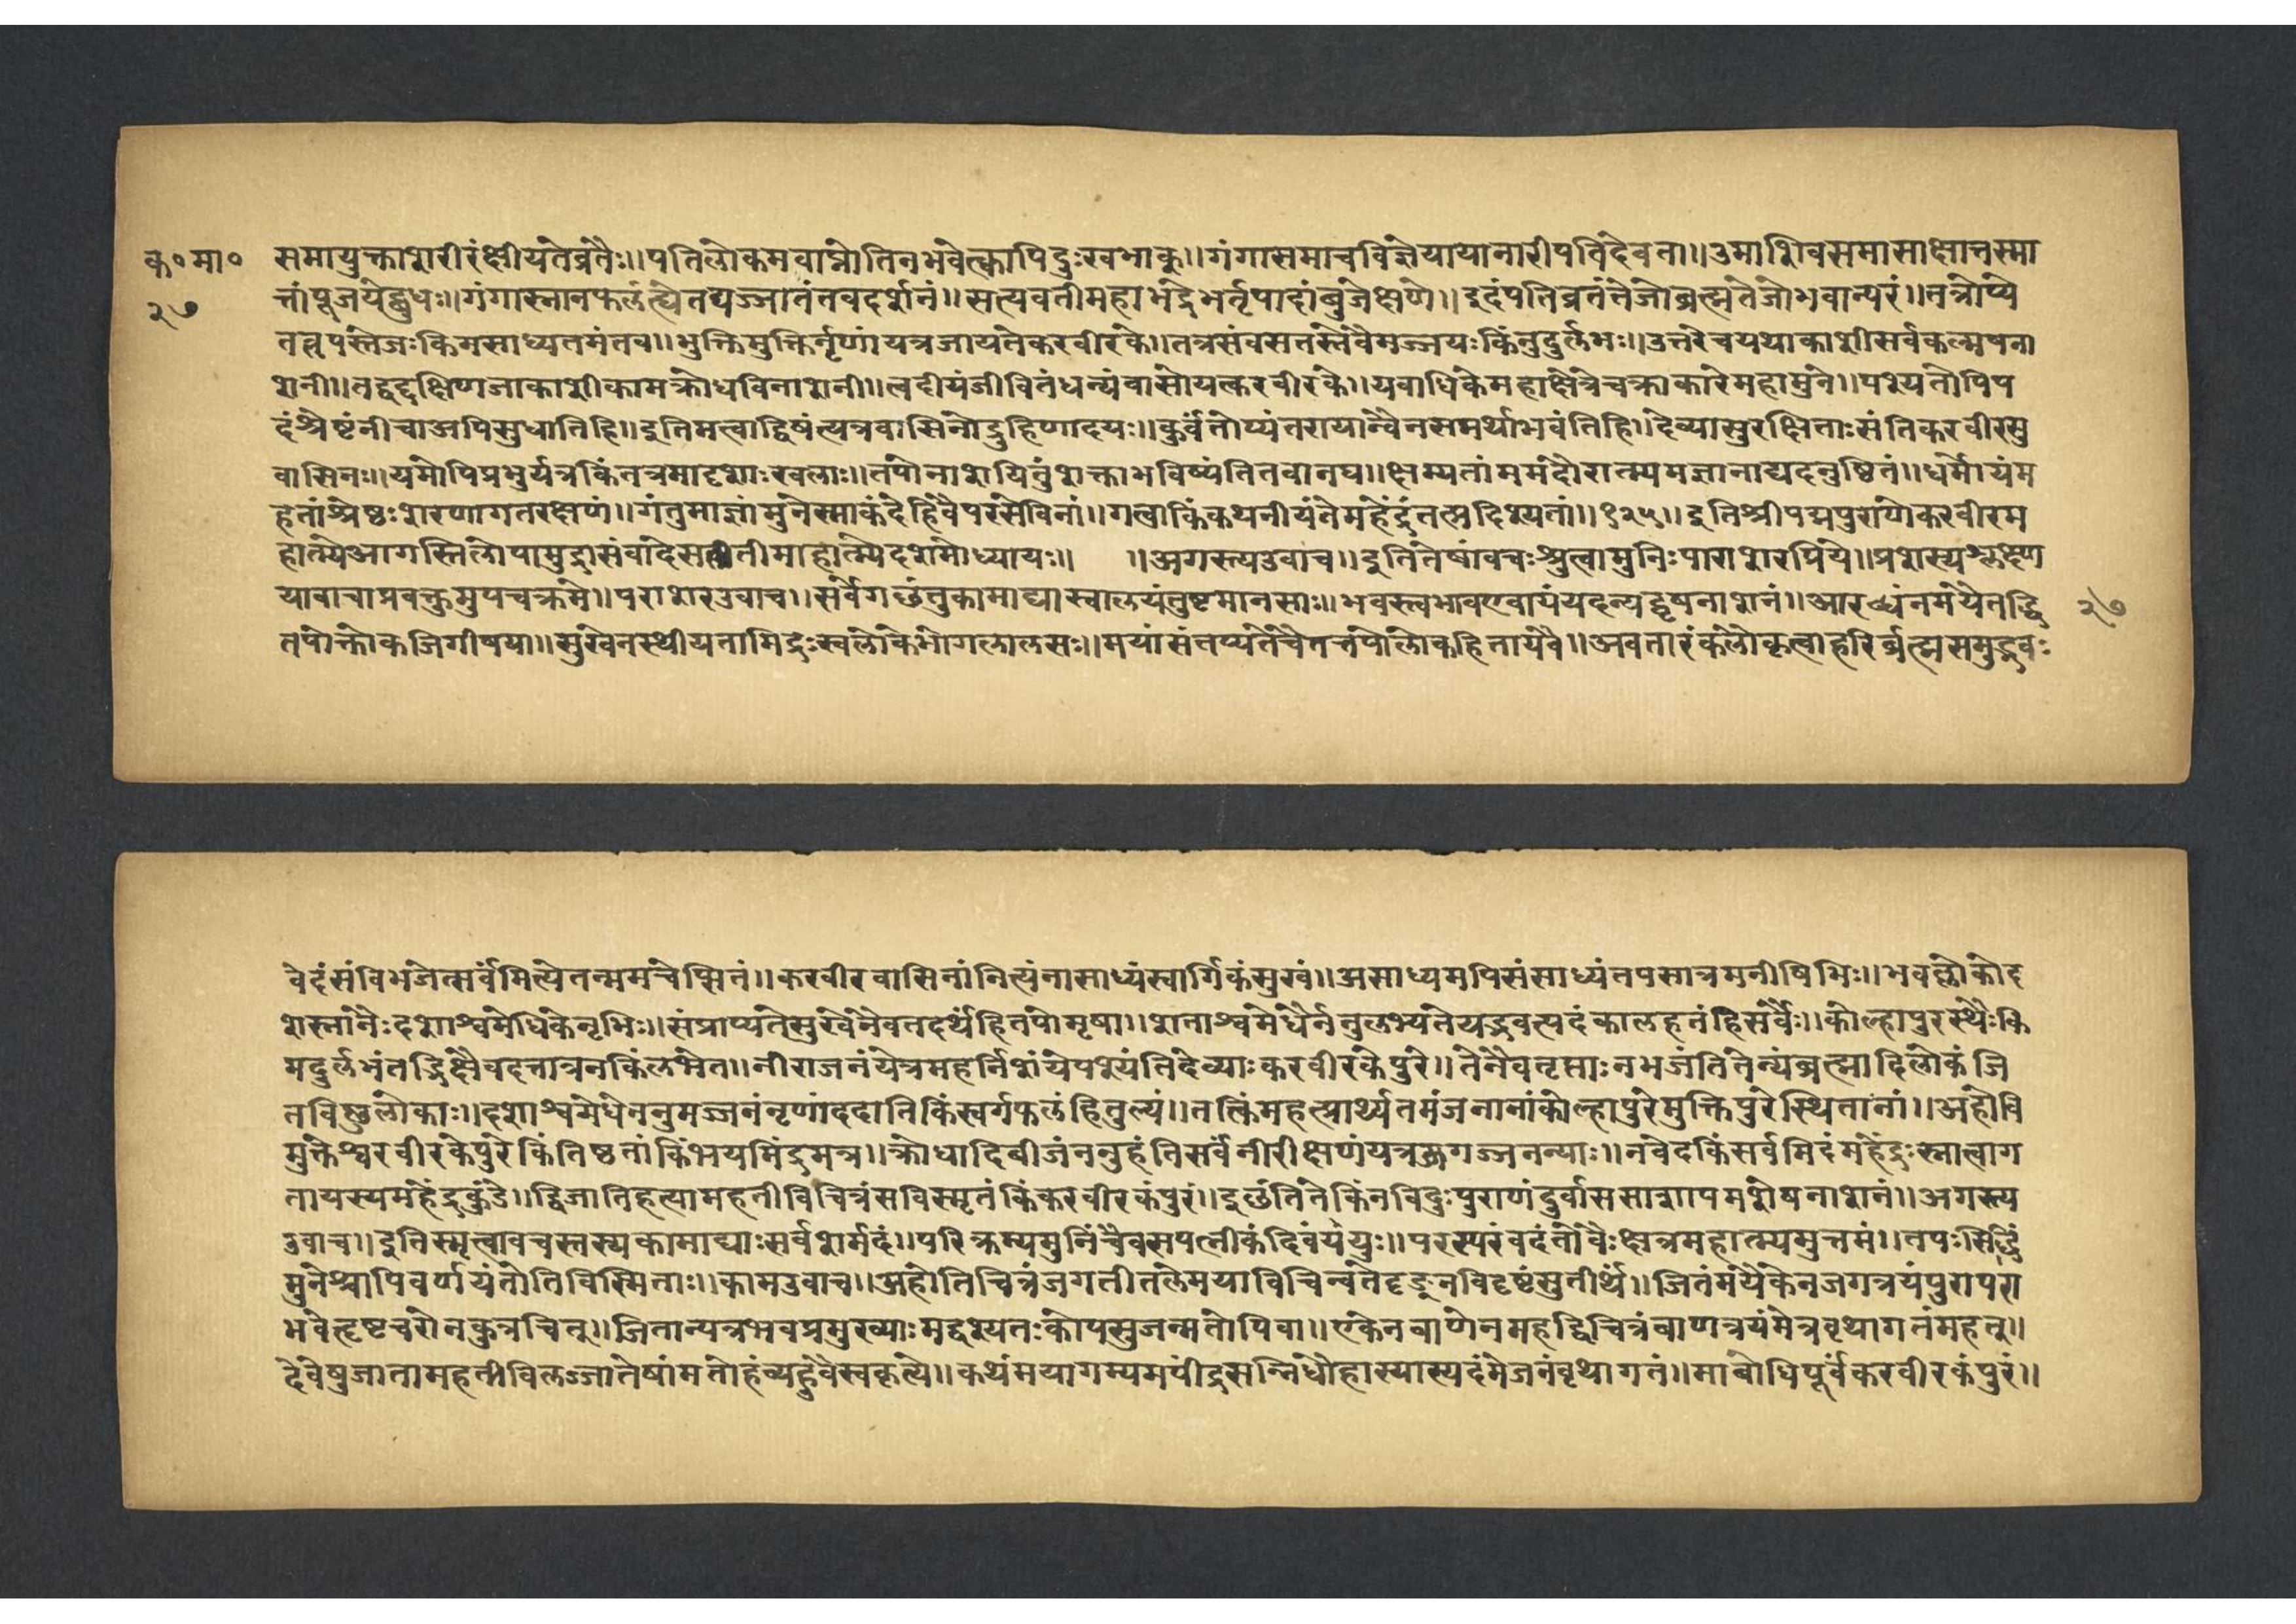 क॰मा॰
२७
समायुक्ताशरीरंक्षीयतेव्रतैः॥पतिलोकमवाप्नोतिनभवेत्क्वापिदुःखभाक्॥गंगासमाचविज्ञेयायानारीपतिदेवता॥उमाशिवसमासाक्षात्तस्मा
त्तांपूजयेद्बुधः॥गंगास्नानफलंत्वेतद्यज्जातंतवदर्शनं॥सत्यवतीमहाभद्रेभर्तृपादांबुजेक्षणे॥इदंपतिव्रतंतेजोब्रह्मतेजोभवान्परं॥तत्रोप्ये
तत्तपस्तेजःकिमसाध्यतमंतव॥भुक्तिमुक्तिर्नृणांयत्रजायतेकरवीरके॥तत्रसंवसतस्तेवैमज्जयःकिंनुदुर्लभः॥उत्तरेचयथाकाशीसर्वकल्मषना
शनी॥तद्वद्दक्षिणजाकाशीकामक्रोधविनाशनी॥त्वदीयंजीवितंधन्यंवासोयत्करवीरके॥यवाधिकेमहाक्षेत्रेचक्राकारेमहामुने॥पश्यतोपिप
दंश्रैष्टंनीचाअपिसुधातिहि॥इतिमत्वाद्विषंत्यत्रवासिनोद्रुहिणादयः॥कुर्वंतोप्यंतरायान्वैनसमर्थाभवंतिहि॥देव्यासुरक्षिताःसंतिकरवीरसु
वासिनः॥यमोपिप्रभुर्यत्रकिंनत्रमादृशाःखलाः॥तपोनाशयितुंशक्ताभविष्यंतितवानघ॥क्षम्यतांममदौरात्म्यमज्ञानाद्यदनुष्ठितं॥धर्मोयंम
हतांश्रेष्ठःशरणागतरक्षणं॥गंतुमाज्ञांमुनेस्माकंदेहिवैपरसेविनां॥गत्वाकिंकथनीयंतेमहेंद्रंतत्प्रदिश्यतां॥१२५॥इतिश्रीपद्मपुराणेकरवीरम
हात्म्येआगस्तिलोपामुद्रासंवादेसतीतीमाहात्म्येदशमोध्यायः॥ ॥अगस्त्यउवाच॥इतितेषांवचःश्रुत्वामुनिःपाराशरप्रिये॥प्रशस्यश्लक्ष्ण
यावाचाप्रवक्तुमुपचक्रमे॥पराशरउवाच॥सर्वेगछंतुकामाद्यास्वालयंतुष्टमानसाः॥भवस्त्वभावएवायंयदन्यद्दूषनाशनं॥आरब्धंनमयैतद्धि २७
तपोन्तोकजिगीषया॥सुखेनस्थीयतामिद्रःस्वलोकेभोगलालसः॥मयासंतप्यतेचैतत्तपोलोकहितायवै॥अवतारंकलोकृत्वाहरिर्ब्रह्मसमुद्भवः
वेदंसंविभजेत्सर्वमित्येतन्ममचेप्सितं॥करवीरवासिनांनित्यंनासाध्यंस्वार्गिकंसुखं॥असाध्यमपिसंसाध्यंतपसात्रमनीषिभिः॥भवल्लोकोद
शस्नानैःदशाश्वमेधिकेनृभिः॥संप्राप्यतेसुखेनैवतदर्थंहितपोमृषा॥शताश्वमेधैर्ननुलभ्यतेयद्भवत्पदंकालहतंहिसर्वैः॥कोल्हापुरस्थैःकि
मदुर्लभंतद्भिक्षैवदत्तात्रनकिंलभेत॥नीराजनंयेत्रमहर्निशंयेपश्यंतिदेव्याःकरवीरकेपुरे॥तेनैवतृप्ताःनभजंतितेन्यंब्रह्मादिलोकंजि
तविष्णुलोकाः॥दशाश्वमेधेननुमज्जनंनृणांददातिकिंस्वर्गफलंहितुल्यं॥तत्किंमहत्प्रार्थ्यतमंजनानांकोल्हापुरेमुक्तिपुरेस्थितानां॥अहोवि
मुक्तेश्वरवीरकेपुरेकिंतिष्ठतांकिंभयमिंद्रमत्र॥क्रोधादिबीजंननुहंतिसर्वंनीरीक्षणंयत्रजगज्जनन्याः॥नवेदकिंसर्वमिदंमहेंद्रःस्नात्वाग
तायस्यमहेंद्रकुंडे॥द्विजातिहत्यामहतीविचित्रंसविस्मृतंकिंकरवीरकंपुरं॥इछंतितेकिंनविदुःपुराणंदुर्वाससाशापमशेषनाशनं॥अगस्त्य
उवाच॥इतिस्मृत्वावचस्तस्यकामाद्याःसर्वशर्मदं॥परिक्रम्यमुनिंचैवसपत्नीकंदिवंययुः॥परस्परंवदंतोवैःक्षत्रमहात्म्यमुत्तमं॥तपःसिद्धिं
मुनेश्चापिवर्णयंतोतिविस्मिताः॥कामउवाच॥अहोतिचित्रंजगतीतलेमयाविचिन्वतेदृङ्नविदृष्टंसुतीर्थं॥जितंमयैकेनजगत्रयंपुरापरा
भवेत्दृष्टचरोनकुत्रचित्॥जितान्यत्रभवप्रमुख्याःमद्दृश्यतःकोपुसुजन्मतोपिवा॥एकेनबाणेनमहद्विचित्रंबाणत्रयंमेत्रवृथागतंमहत्॥
देवेषुजातामहतीविलज्जातेषांमतोहंव्यहुवैस्वकृत्ये॥कथंमयागम्यमपींद्रसन्निधौहास्यास्यदंमेजनंवृथागतं॥माबोधिपूर्वंकरवीरकंपुरं॥